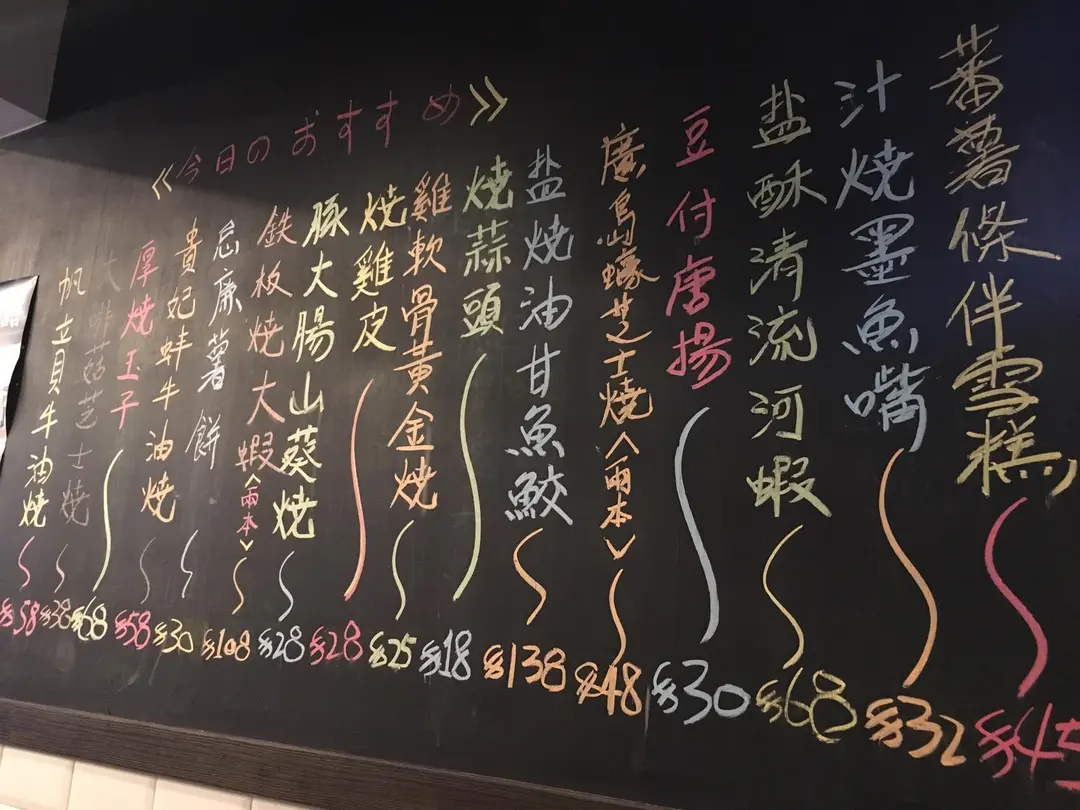 《今日のおすすめ》
蕃薯條伴雪糕 $45
汁燒墨魚嘴 $32
盐酥清流河蝦 $68
豆付唐揚 $30
廣島蠔芝士燒<兩本> $48
盐燒油甘魚鮫 $138
燒蒜頭 $18
雞軟骨黃金燒 $25
燒雞皮 $28
豚大腸山葵燒 $28
鉄板燒大蝦<兩本> $108
忌廉薯餅 $30
貴妃蚌牛油燒 $58
厚燒玉子 $68
大啡菇芝士燒 $38
帆立貝牛油燒 $58